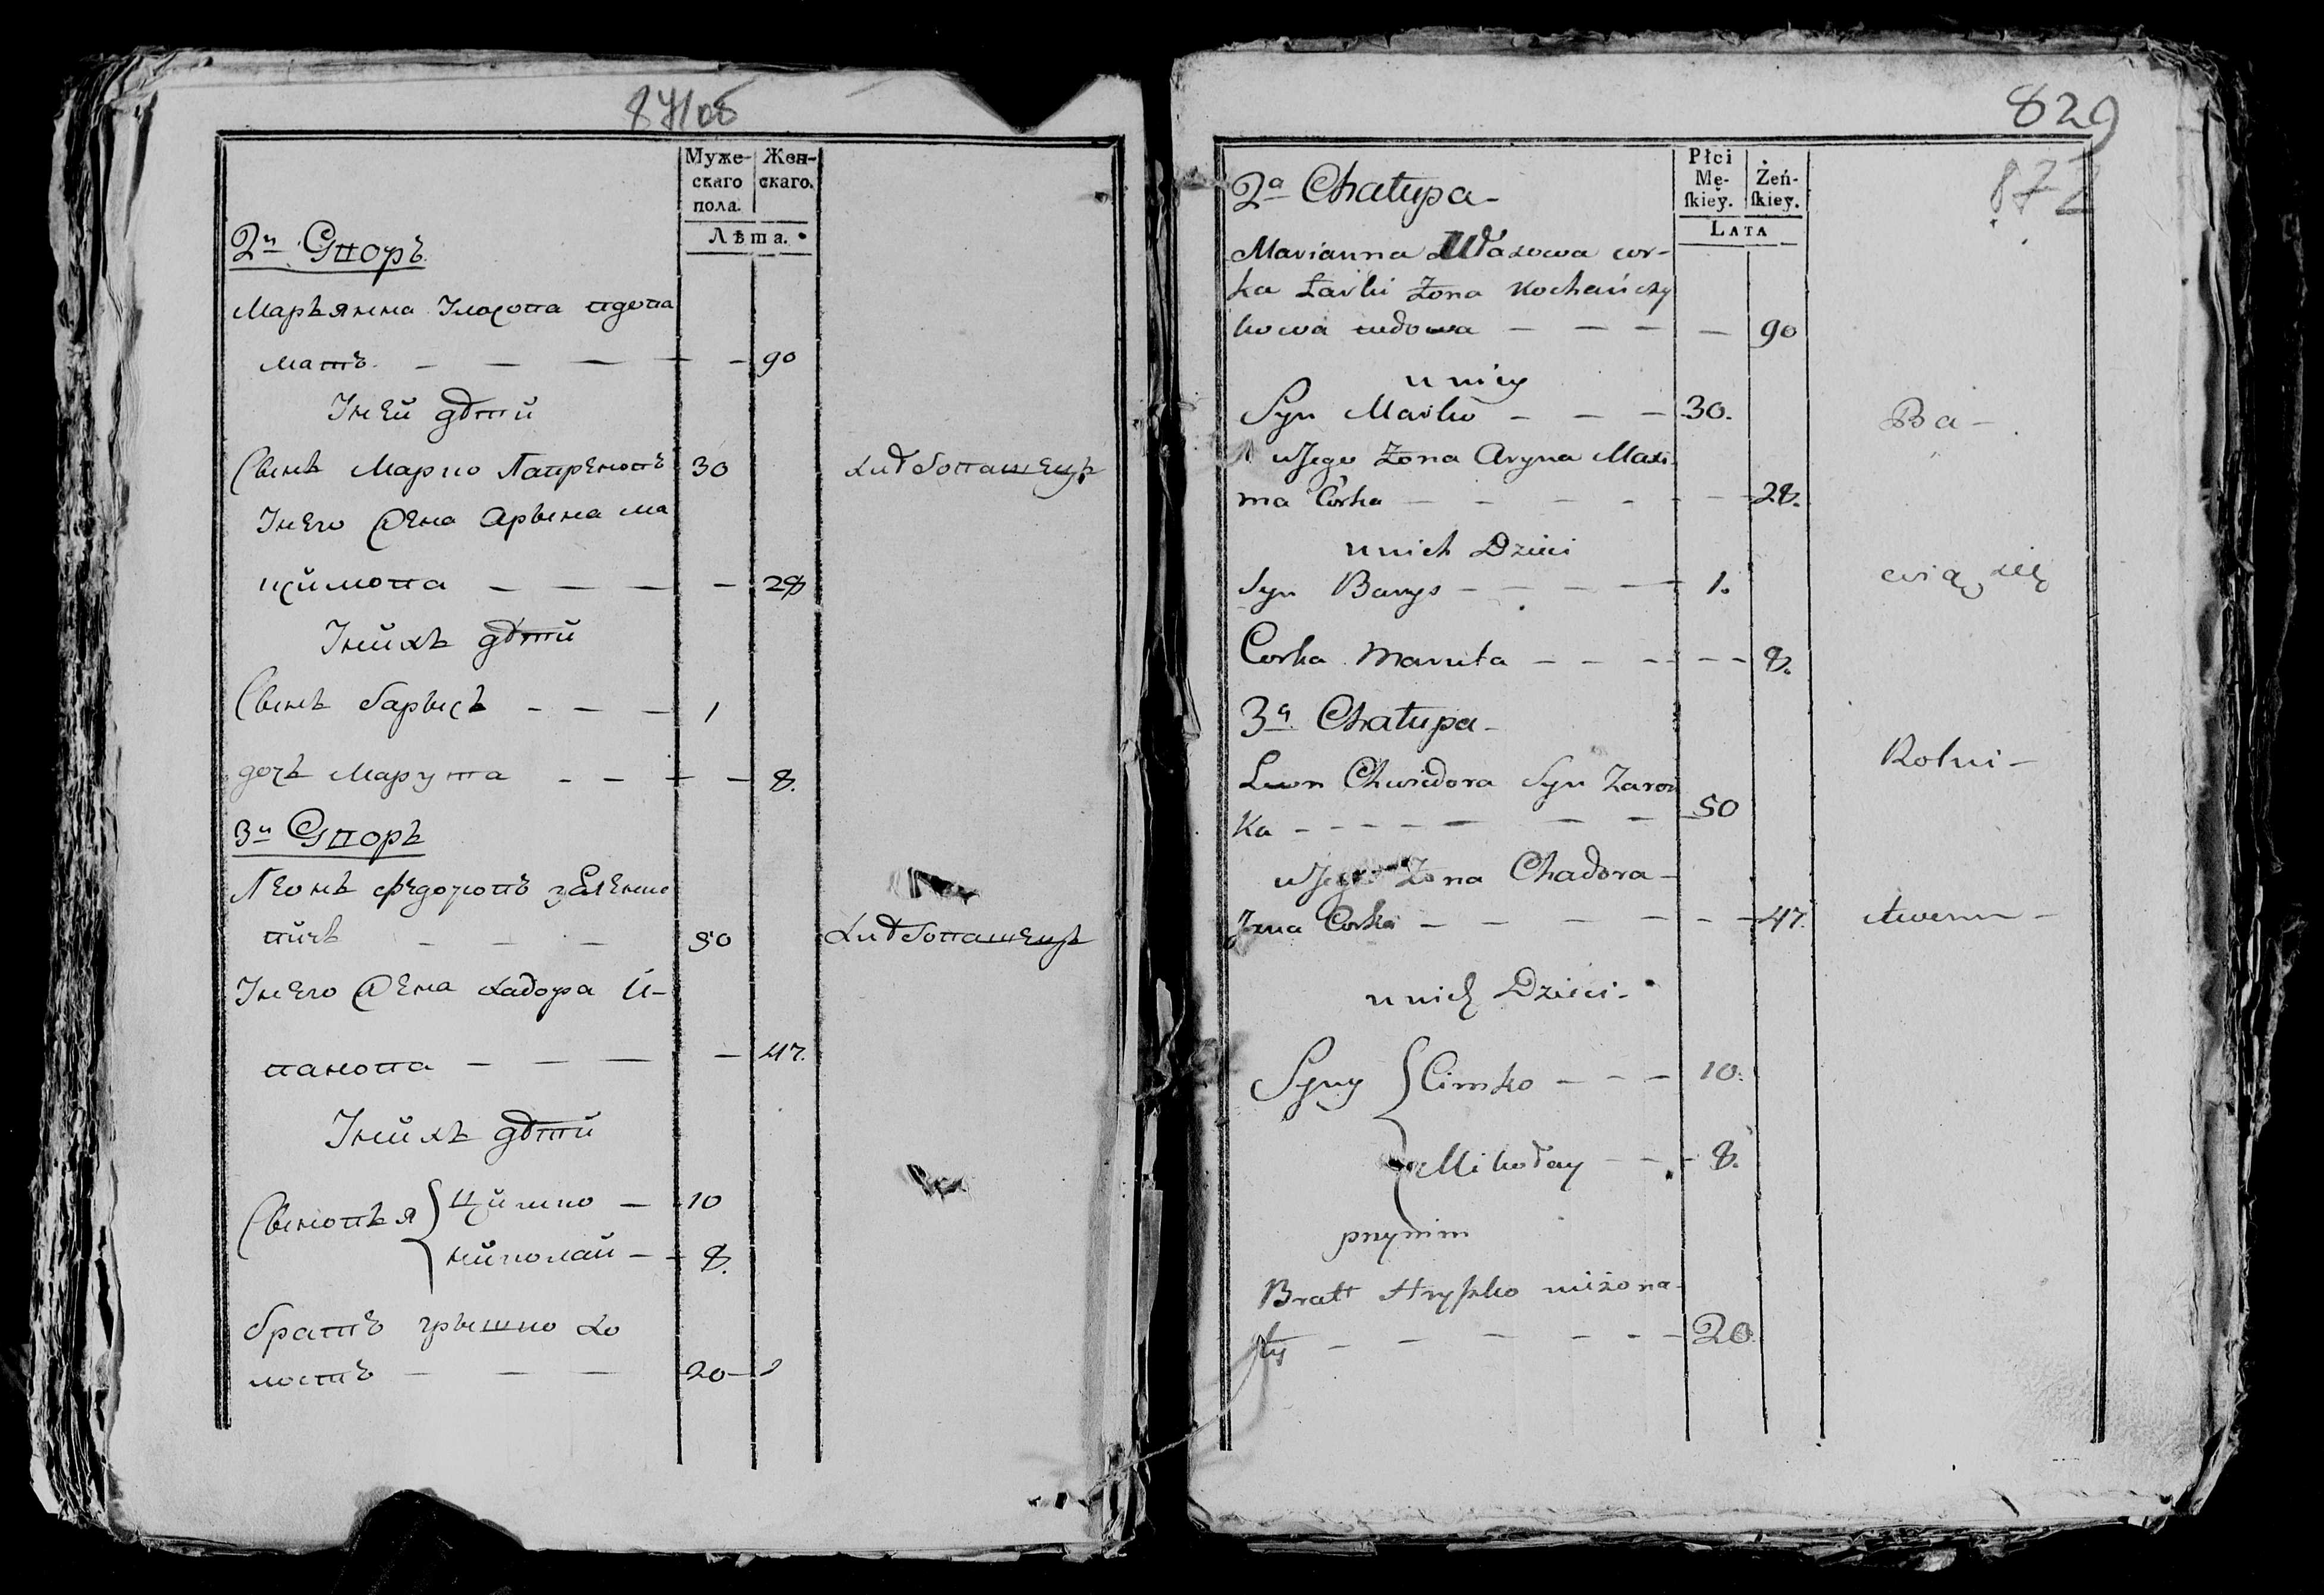 871об
Муже-
скаго
пола.
Жен-
скаго.
Лѣта.
2й Дворъ
Марьянна Власова вдова
мать — — — — 90
У ней дѣти
Сынъ Марко 30 хлебопашецъ
У него жена Арына Ма
цимова — — — — 28
У нихъ дѣти
Сынъ барысъ — — — 1
дочь Марута — — — — 8.
3й Дворъ
Леонъ Федоровъ
вичъ — — — 50 хлебопашецъ
У него жена хадора И-
ванова — — — — 47.
У нихъ дѣти
Сыновья Цимко — 10
Николай — — 8.
братъ грышко хо
лостъ — — — 20 —
829
872
Płci
Mę-
ſkiey.
Żeń-
ſkiey.
LATA
2a Chałupa -
Marianna Własowa cor-
ka Ławki Żona Kochańczy
kowa wdowa — — — — 90
u niey
Syn Marko — — — 30. Ba -
u Jego Żona Aryna Maxi-
ma Córka — — — — — — 28.
u nich Dzieci
Syn Barys — — — — 1. wią się
Corka Maruta — — — — — — 8.
3a Chałupa -
Leon Chwiedora Syn
ka — — — — — — — — 50 Rolni -
u Jego Żona Chadora -
Jana Corka — — — — — — 47. ctwem -
u nich Dzieci -
Syny Cimko — — — 10.
Mikołay — — — 8.
przynim
Bratt Hryſzko nieżona-
ty — — — — — — 20